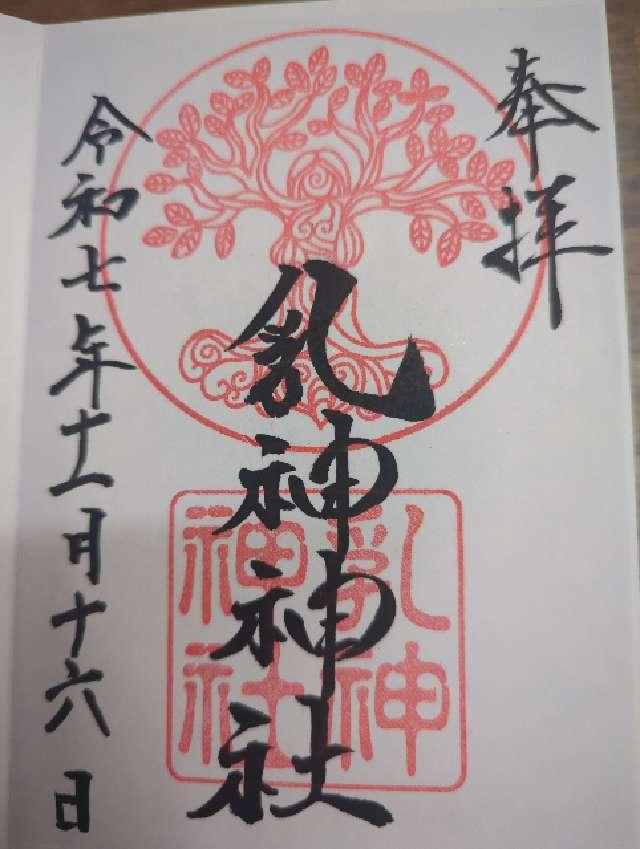 奉拝
乳神神社
乳神
神社
令和七年十一月十六日